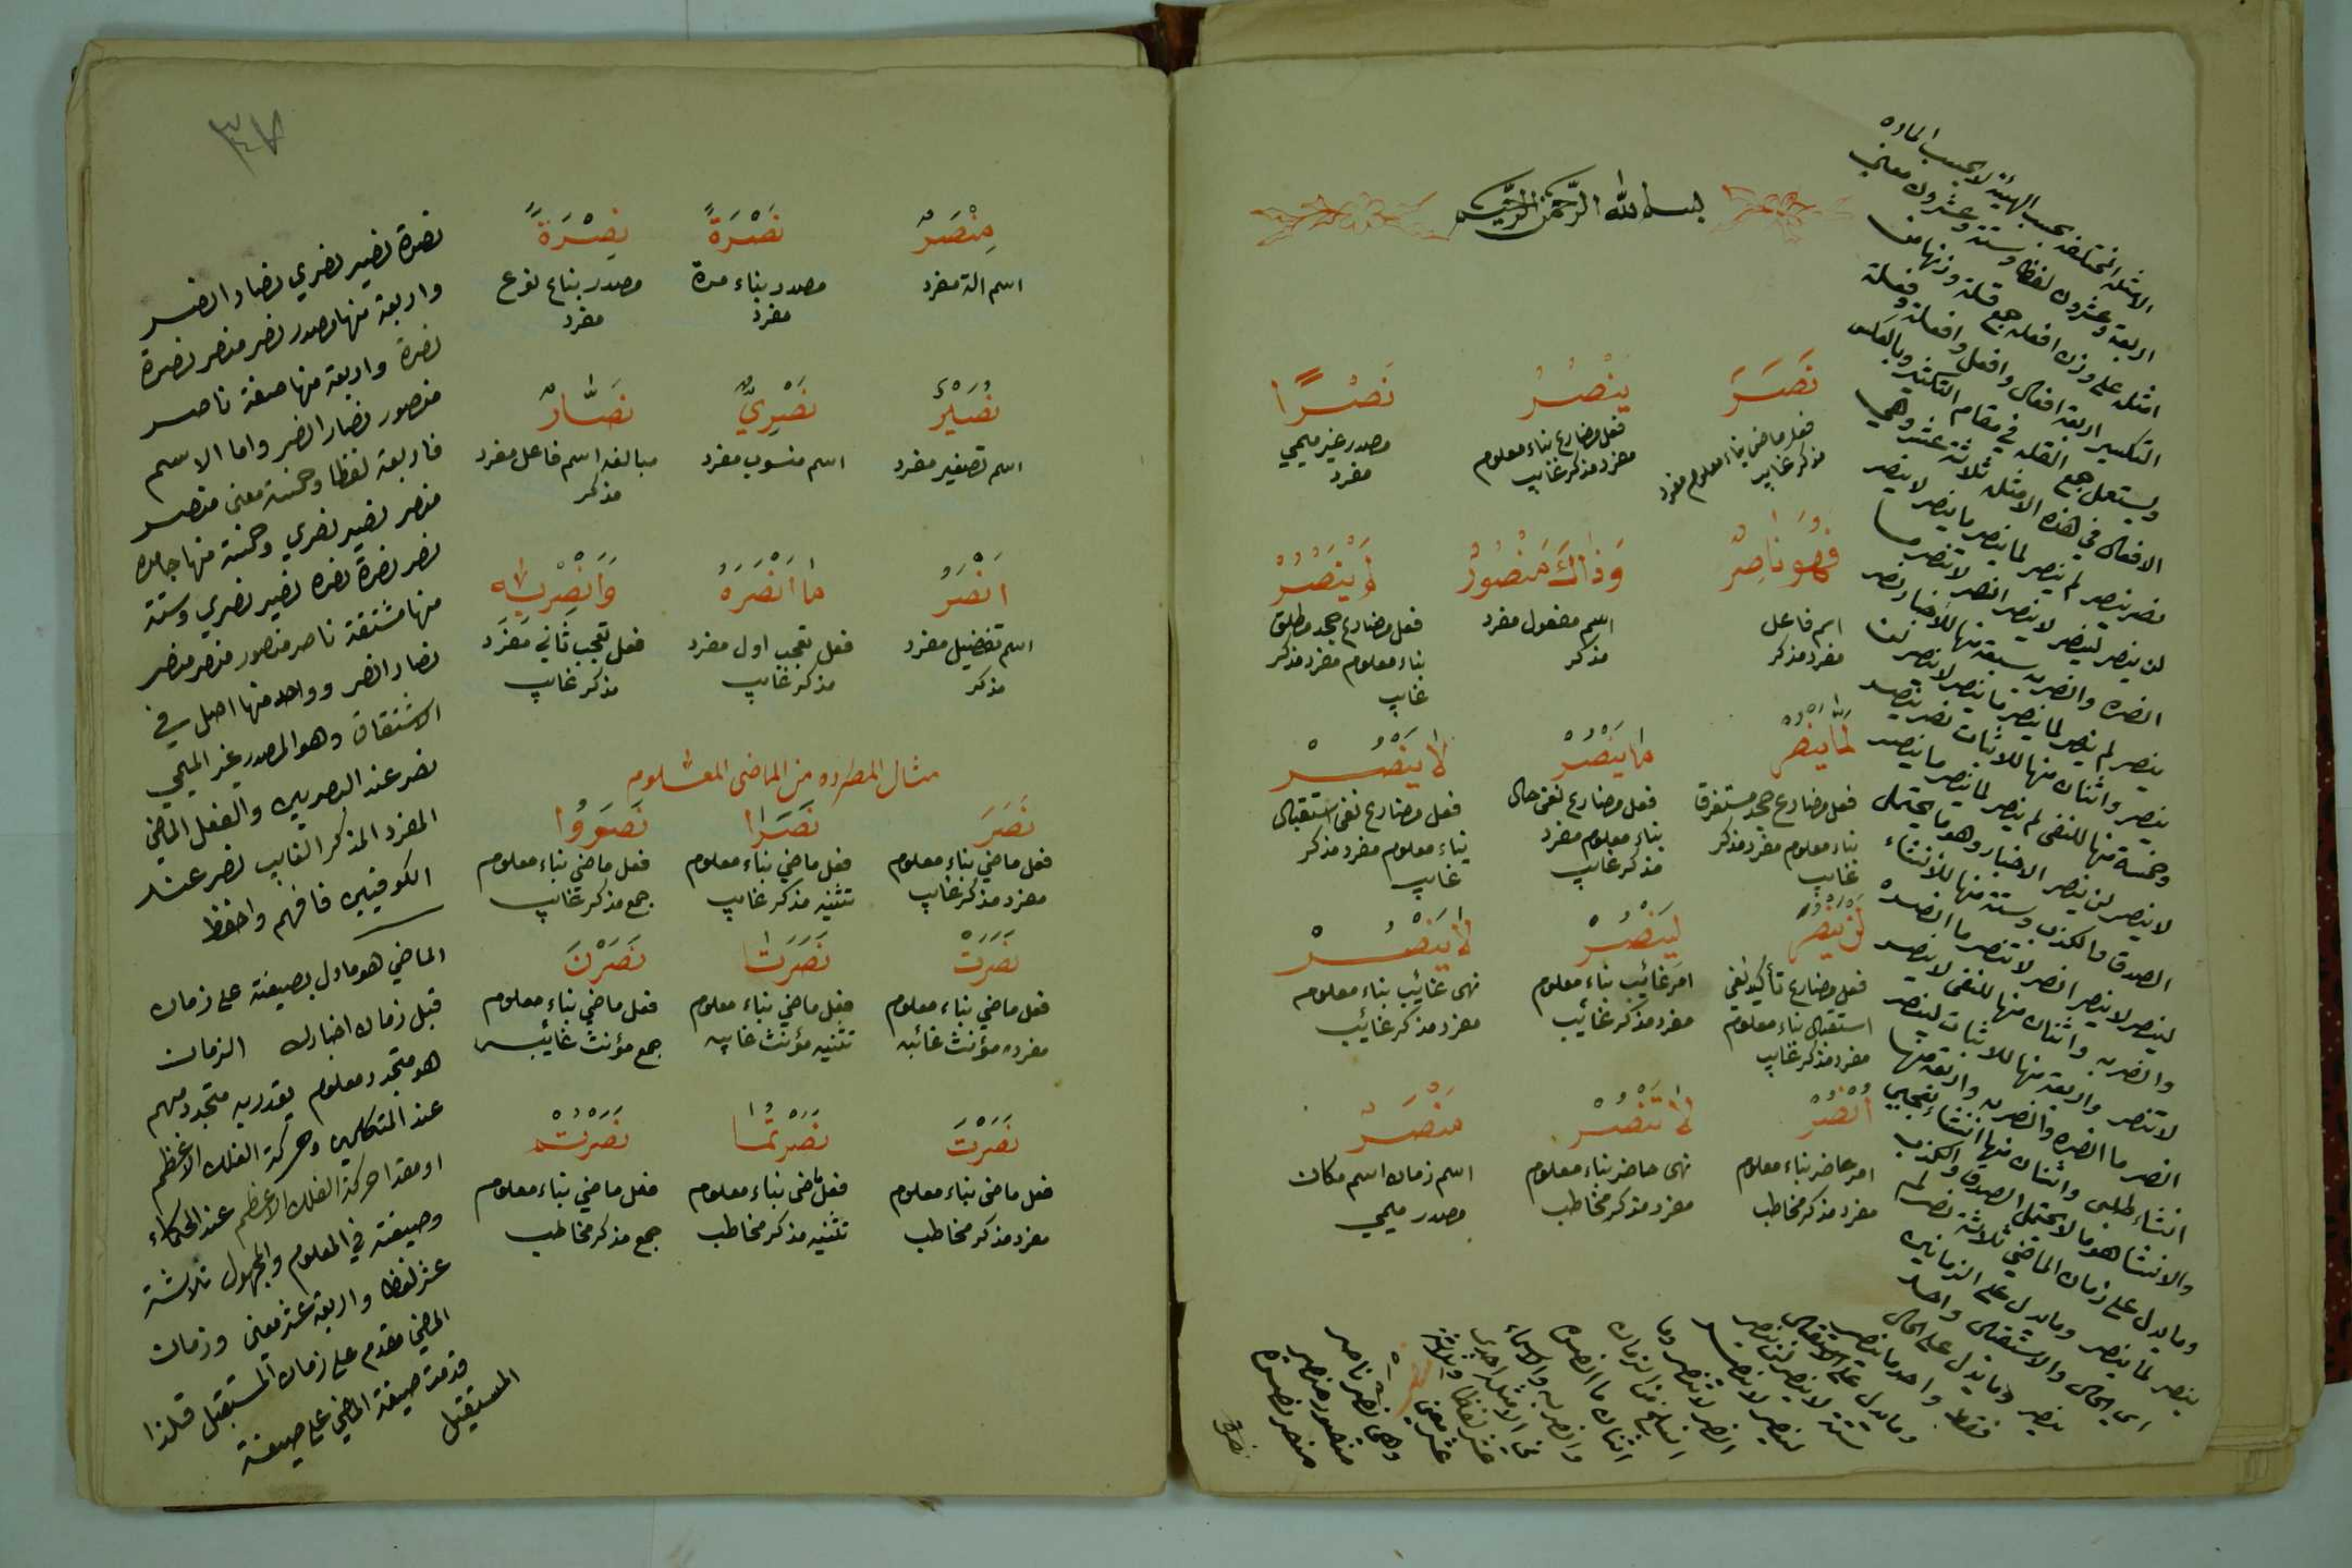 بسم الله الرحمن الرحيم
نَصَرَ يَنْصُرُ نَصْرًا
فعل ماضي بناء معلوم مفرد مذكر غايب
فعل مضارع بناء معلوم مفرد مذكر غايب
مصدر غير ميمي مفرد
فَهُوَ نَاصِرٌ وَذَاكَ مَنْصُورٌ لَمْ يَنْصُرْ
اسم فاعل مفرد مذكر
اسم مفعول مفرد مذكر
فعل مضارع جحد مطلق بناء معلوم مفرد مذكر غايب
لَمَّا يَنْصُرْ مَا يَنْصُرُ لَا يَنْصُرُ
فعل مضارع جحد مستغرق بناء معلوم مفرد مذكر غايب
فعل مضارع نفى حال بناء معلوم مفرد مذكر غايب
فعل مضارع نفى استقبال بناء معلوم مفرد مذكر غايب
لَنْ يَنْصُرَ لِيَنْصُرْ لَا يَنْصُرْ
فعل مضارع تأكيد نفي استقبال بناء معلوم مفرد مذكر غايب
امر غائب بناء معلوم مفرد مذكر غائب
نهى غائب بناء معلوم مفرد مذكر غائب
اُنْصُرْ لَا تَنْصُرْ مَنْصَرٌ
امر حاضر بناء معلوم مفرد مذكر مخاطب
نهى حاضر بناء معلوم مفرد مذكر مخاطب
اسم زمان اسم مكان مصدر ميمي
الامثله المختلفه بحسب الهيئة لا بحسب الماده
اربعة وعشرون لفظا وستة وعشرون معني
امثله على وزن افعله جمع قلة وزنها من
التكسير اربعة افعال وافعل وافعلة وفعلة
ويستعمل جمع القله في مقام التكثير وبالعكس
الافعال في هذه الامثله ثلاثة عشر وهي
نصر ينصر لم ينصر لما ينصر ما ينصر لا ينصر
لن ينصر لينصر لا ينصر انصر لا تنصر ما
انصره وانصر به سبعة منها للاخبار نصر
ينصر لم ينصر لما ينصر ما ينصر لا ينصر لن
ينصر واثنان منها للاثبات نصر ينصر
وخمسة منها للنفى لم ينصر لما ينصر ما ينصر
لا ينصر لن ينصر الاخبار وهو ما يحتمل
الصدق والكذب وستة منها للانشاء
لينصر لا ينصر انصر لا تنصر ما انصره
وانصر به واثنان منها للنفى لا ينصر
لا تنصر واربعة منها للاثبات لينصر
انصر ما انصره وانصر به واربعة منها
انشاء طلبى واثنان منها انشاء تعجبي
والانشا هو ما لا يحتمل الصدق والكذب
وما يدل على زمان الماضي ثلاثة نصر لم
ينصر لما ينصر وما يدل على الزمانين
اي الحال والاستقبال واحد
ينصر وما يدل على الحال
فقط واحد ما ينصر
وما يدل على الاستقبال
ستة لا ينصر لن ينصر
لينصر لا ينصر
انصر لا تنصر وما
انسلخ من الزمان
اثنان ما انصره
وانصر به والاسماء
في الامثلة احدى
عشر لفظا وثلاثة
عشر معنى
وهما نصر ناصر
منصور منصر
منصر نصرة
نصرة
٣٤٧
مِنْصَرٌ نَصْرَةً نِصْرَةً
اسم الة مفرد
مصدر بناء مرة مفرد
مصدر بناء نوع مفرد
نُصَيْرٌ نَصْرِيٌّ نَصَّارٌ
اسم تصغير مفرد
اسم منسوب مفرد
مبالغه اسم فاعل مفرد مذكر
اَنْصَرُ مَا اَنْصَرَهُ وَاَنْصِرْ بِهِ
اسم تفضيل مفرد مذكر
فعل تعجب اول مفرد مذكر غايب
فعل تعجب ثاني مفرد مذكر غايب
مثال المطرده من الماضى المعلوم
نَصَرَ نَصَرَا نَصَرُوا
فعل ماضي بناء معلوم مفرد مذكر غايب
فعل ماضي بناء معلوم تثنيه مذكر غايب
فعل ماضي بناء معلوم جمع مذكر غايب
نَصَرَتْ نَصَرَتَا نَصَرْنَ
فعل ماضي بناء معلوم مفرده مؤنث غائبه
فعل ماضي بناء معلوم تثنيه مؤنث غايبه
فعل ماضي بناء معلوم جمع مؤنث غائبه
نَصَرْتَ نَصَرْتُمَا نَصَرْتُمْ
فعل ماضى بناء معلوم مفرد مذكر مخاطب
فعل ماضى بناء معلوم تثنيه مذكر مخاطب
فعل ماضي بناء معلوم جمع مذكر مخاطب
نصرة نصير نصري نصار انصر
واربعة منها مصدر نصر منصر نصرة
نصرة واربعة منها صفة ناصر
منصور نصار انصر واما الاسم
فاربعة لفظا وخمسة معنى منصر
منصر نصير نصري وخمسة منها جامده
نصر نصرة نصره نصير نصري وستة
منها مشتقة ناصر منصور منصر منصر
نصار انصر وواحد منها اصل في
الاشتقاق وهو المصدر غير الميمي
نصر عند البصريين والفعل الماضي
المفرد المذكر الغايب نصر عند
الكوفيين فافهم واحفظ
الماضي هو ما دل بصيغته على زمان
قبل زمان اخبارك الزمان
هو متجدد معلوم يقدر به متجدد مبهم
عند المتكلمين وحركة الفلك الاعظم
او مقدا حركة الفلك الاعظم عند الحكماء
وصيغته في المعلوم والمجهول ثلاثة
عشر لفظا واربعة عشر معنى وزمان
الماضي مقدم على زمان المستقبل فلذا
قدمت صيغة الماضي على صيغة
المستقبل